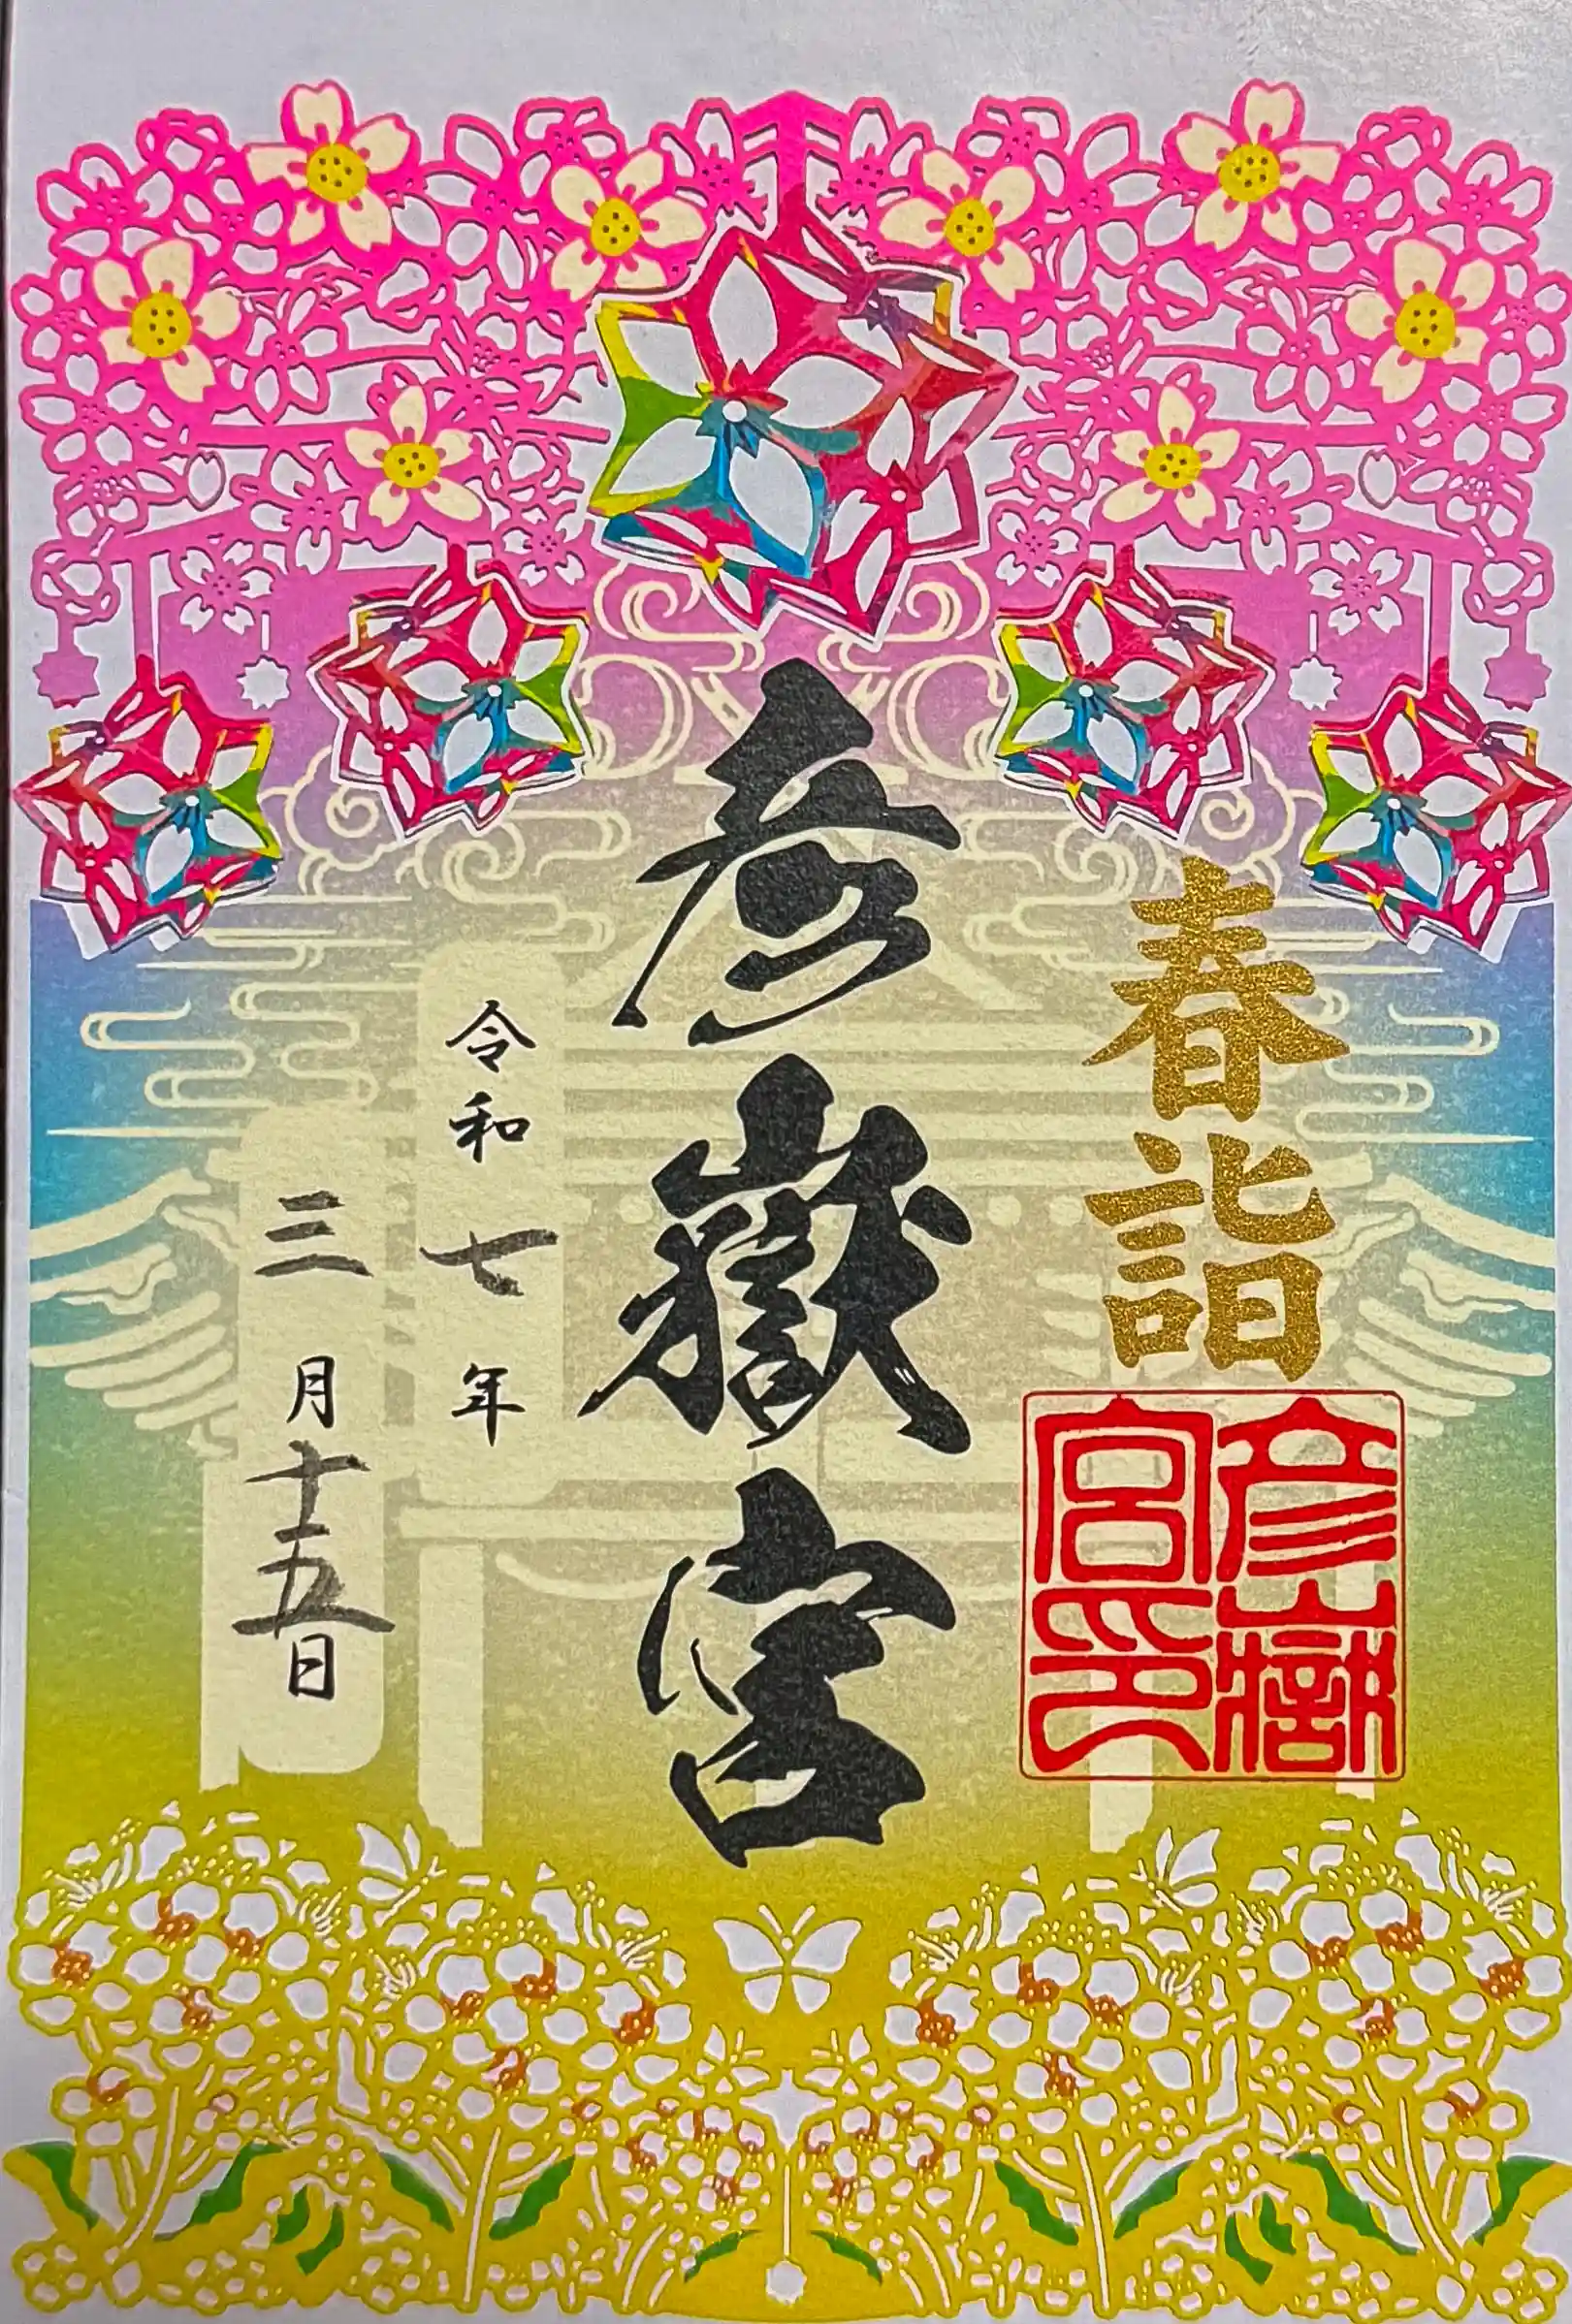 春詣
彦嶽宮印
彦嶽宮
令和七年
三月十五日